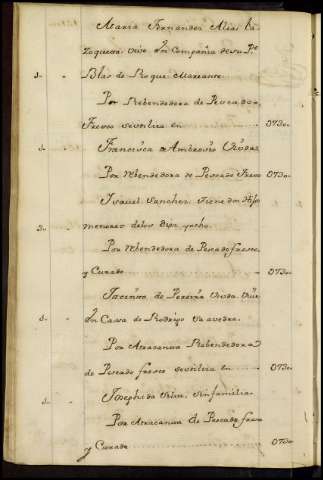 Maria Fernandez Alias la
Zaquera, vive En Compañia de su Pe
1 - Blas de Roque Mareante
Por Rebendedora de Pescado
Fresco se utiliza en - - - 0730.
1 - Francisca de Ambrosio Viuda
Por Rebendedora de Pescado Fresco 0730.
Isavel Sanchez, tiene dos Hijos
3 - menores de los diez y ocho
Por Rebendedora de Pescado fresco
y Curado - - - 0730.
Jacinta de Pereira Viuda Vive
1 - En Cassa de Rodrigo Saavedra
Por Atracanua Rebendedora
de Pescado fresco se utiliza en - - - 0730.
1 - Josepha da Silva, sin familia
Por Atracanua de Pescado fresco
y Curado - - - 0730.